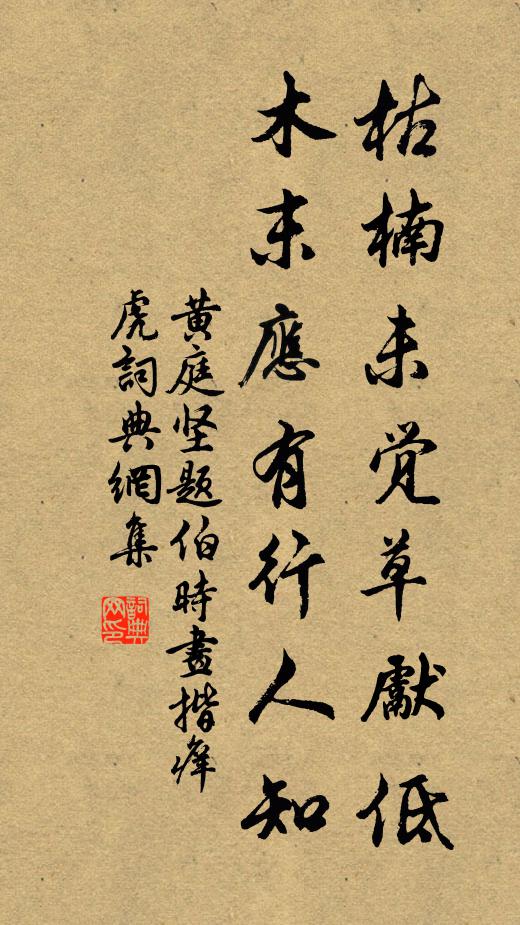 枯楠未觉草獻低
木末應有行人知
黄庭坚题伯時畫揩痒
虎詞典網集
詞典
网印